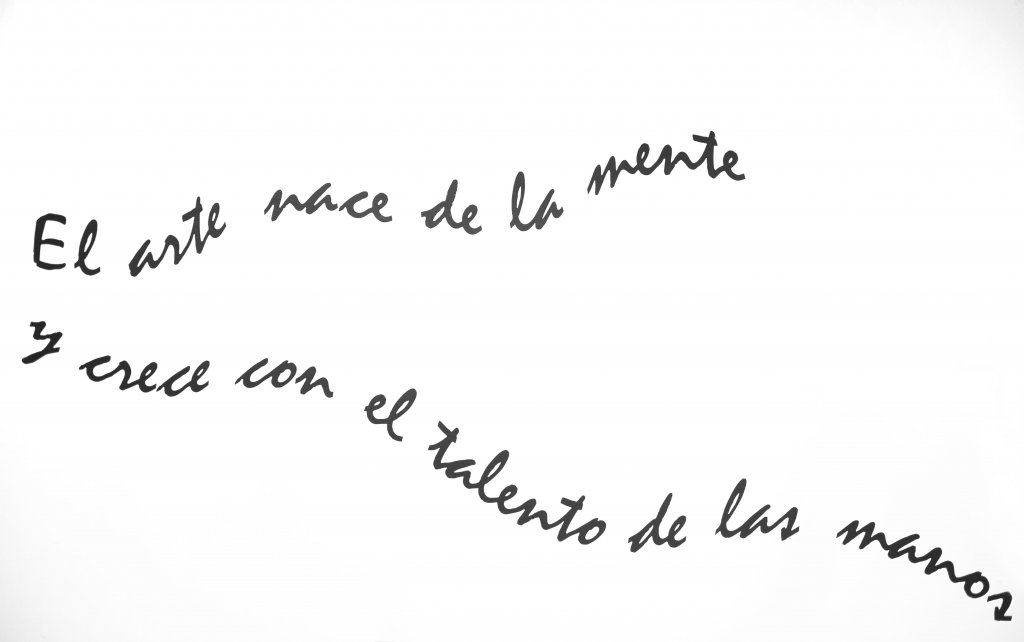 El arte nace de la mente
y crece con el talento de las manos